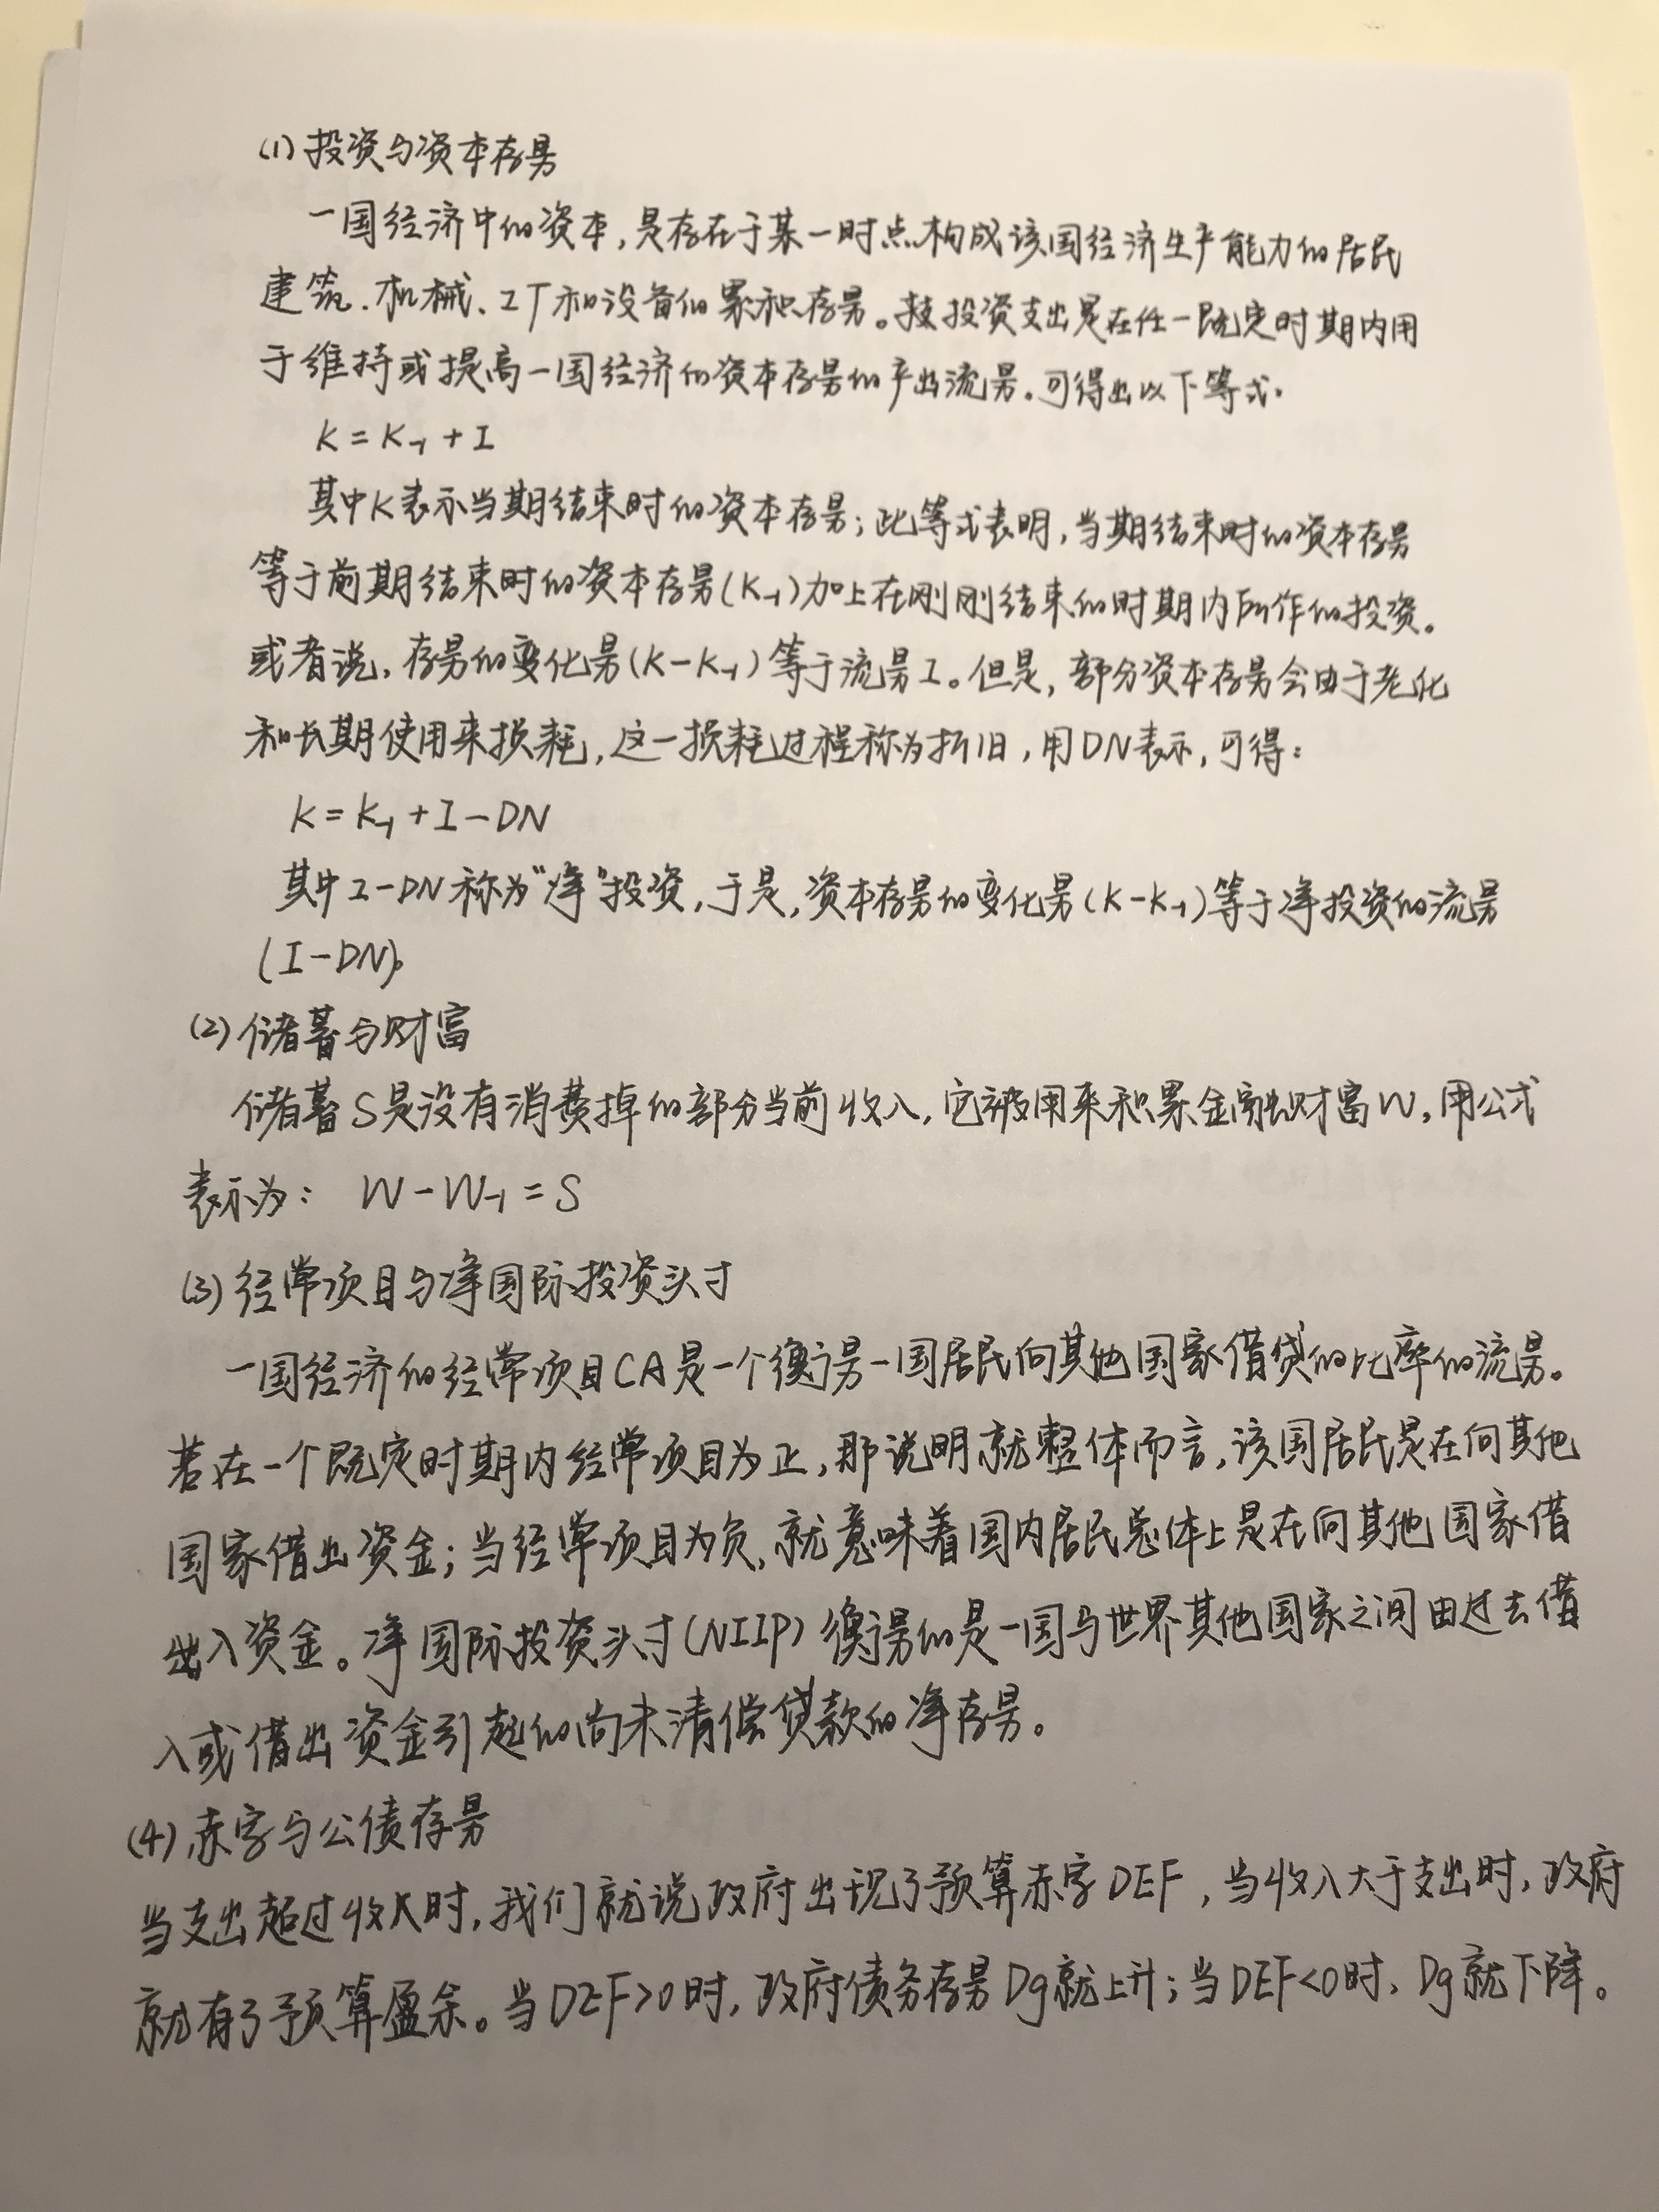 (1) 投资与资本存量
一国经济中的资本,是存在于某一时点构成该国经济生产能力的居民
建筑、机械、工厂和设备的累积存量。投资支出是在任一既定时期内用
于维持或提高一国经济的资本存量的产出流量。可得出以下等式.
K=K₋₁+I
其中K表示当期结束时的资本存量;此等式表明,当期结束时的资本存量
等于前期结束时的资本存量(K₋₁)加上在刚刚结束的时期内所作的投资。
或者说,存量的变化量(K-K₋₁)等于流量I。但是,部分资本存量会由于老化
和长期使用来损耗,这一损耗过程称为折旧,用DN表示,可得:
K=K₋₁+I-DN
其中I-DN称为“净”投资,于是,资本存量的变化量(K-K₋₁)等于净投资的流量
(I-DN)。
(2) 储蓄与财富
储蓄S是没有消费掉的部分当前收入,它被用来积累金融财富W,用公式
表示为: W-W₋₁=S
(3) 经常项目与净国际投资头寸
一国经济的经常项目CA是一个衡量一国居民向其他国家借贷的比率的流量。
若在一个既定时期内经常项目为正,那说明就整体而言,该国居民是在向其他
国家借出资金;当经常项目为负,就意味着国内居民总体上是在向其他国家借
入资金。净国际投资头寸(NIIP)衡量的是一国与世界其他国家之间由过去借
入或借出资金引起的尚未清偿贷款的净存量。
(4) 赤字与公债存量
当支出超过收入时,我们就说政府出现了预算赤字DEF,当收入大于支出时,政府
就有了预算盈余。当DEF>0时,政府债务存量Dg就上升;当DEF<0时,Dg就下降。